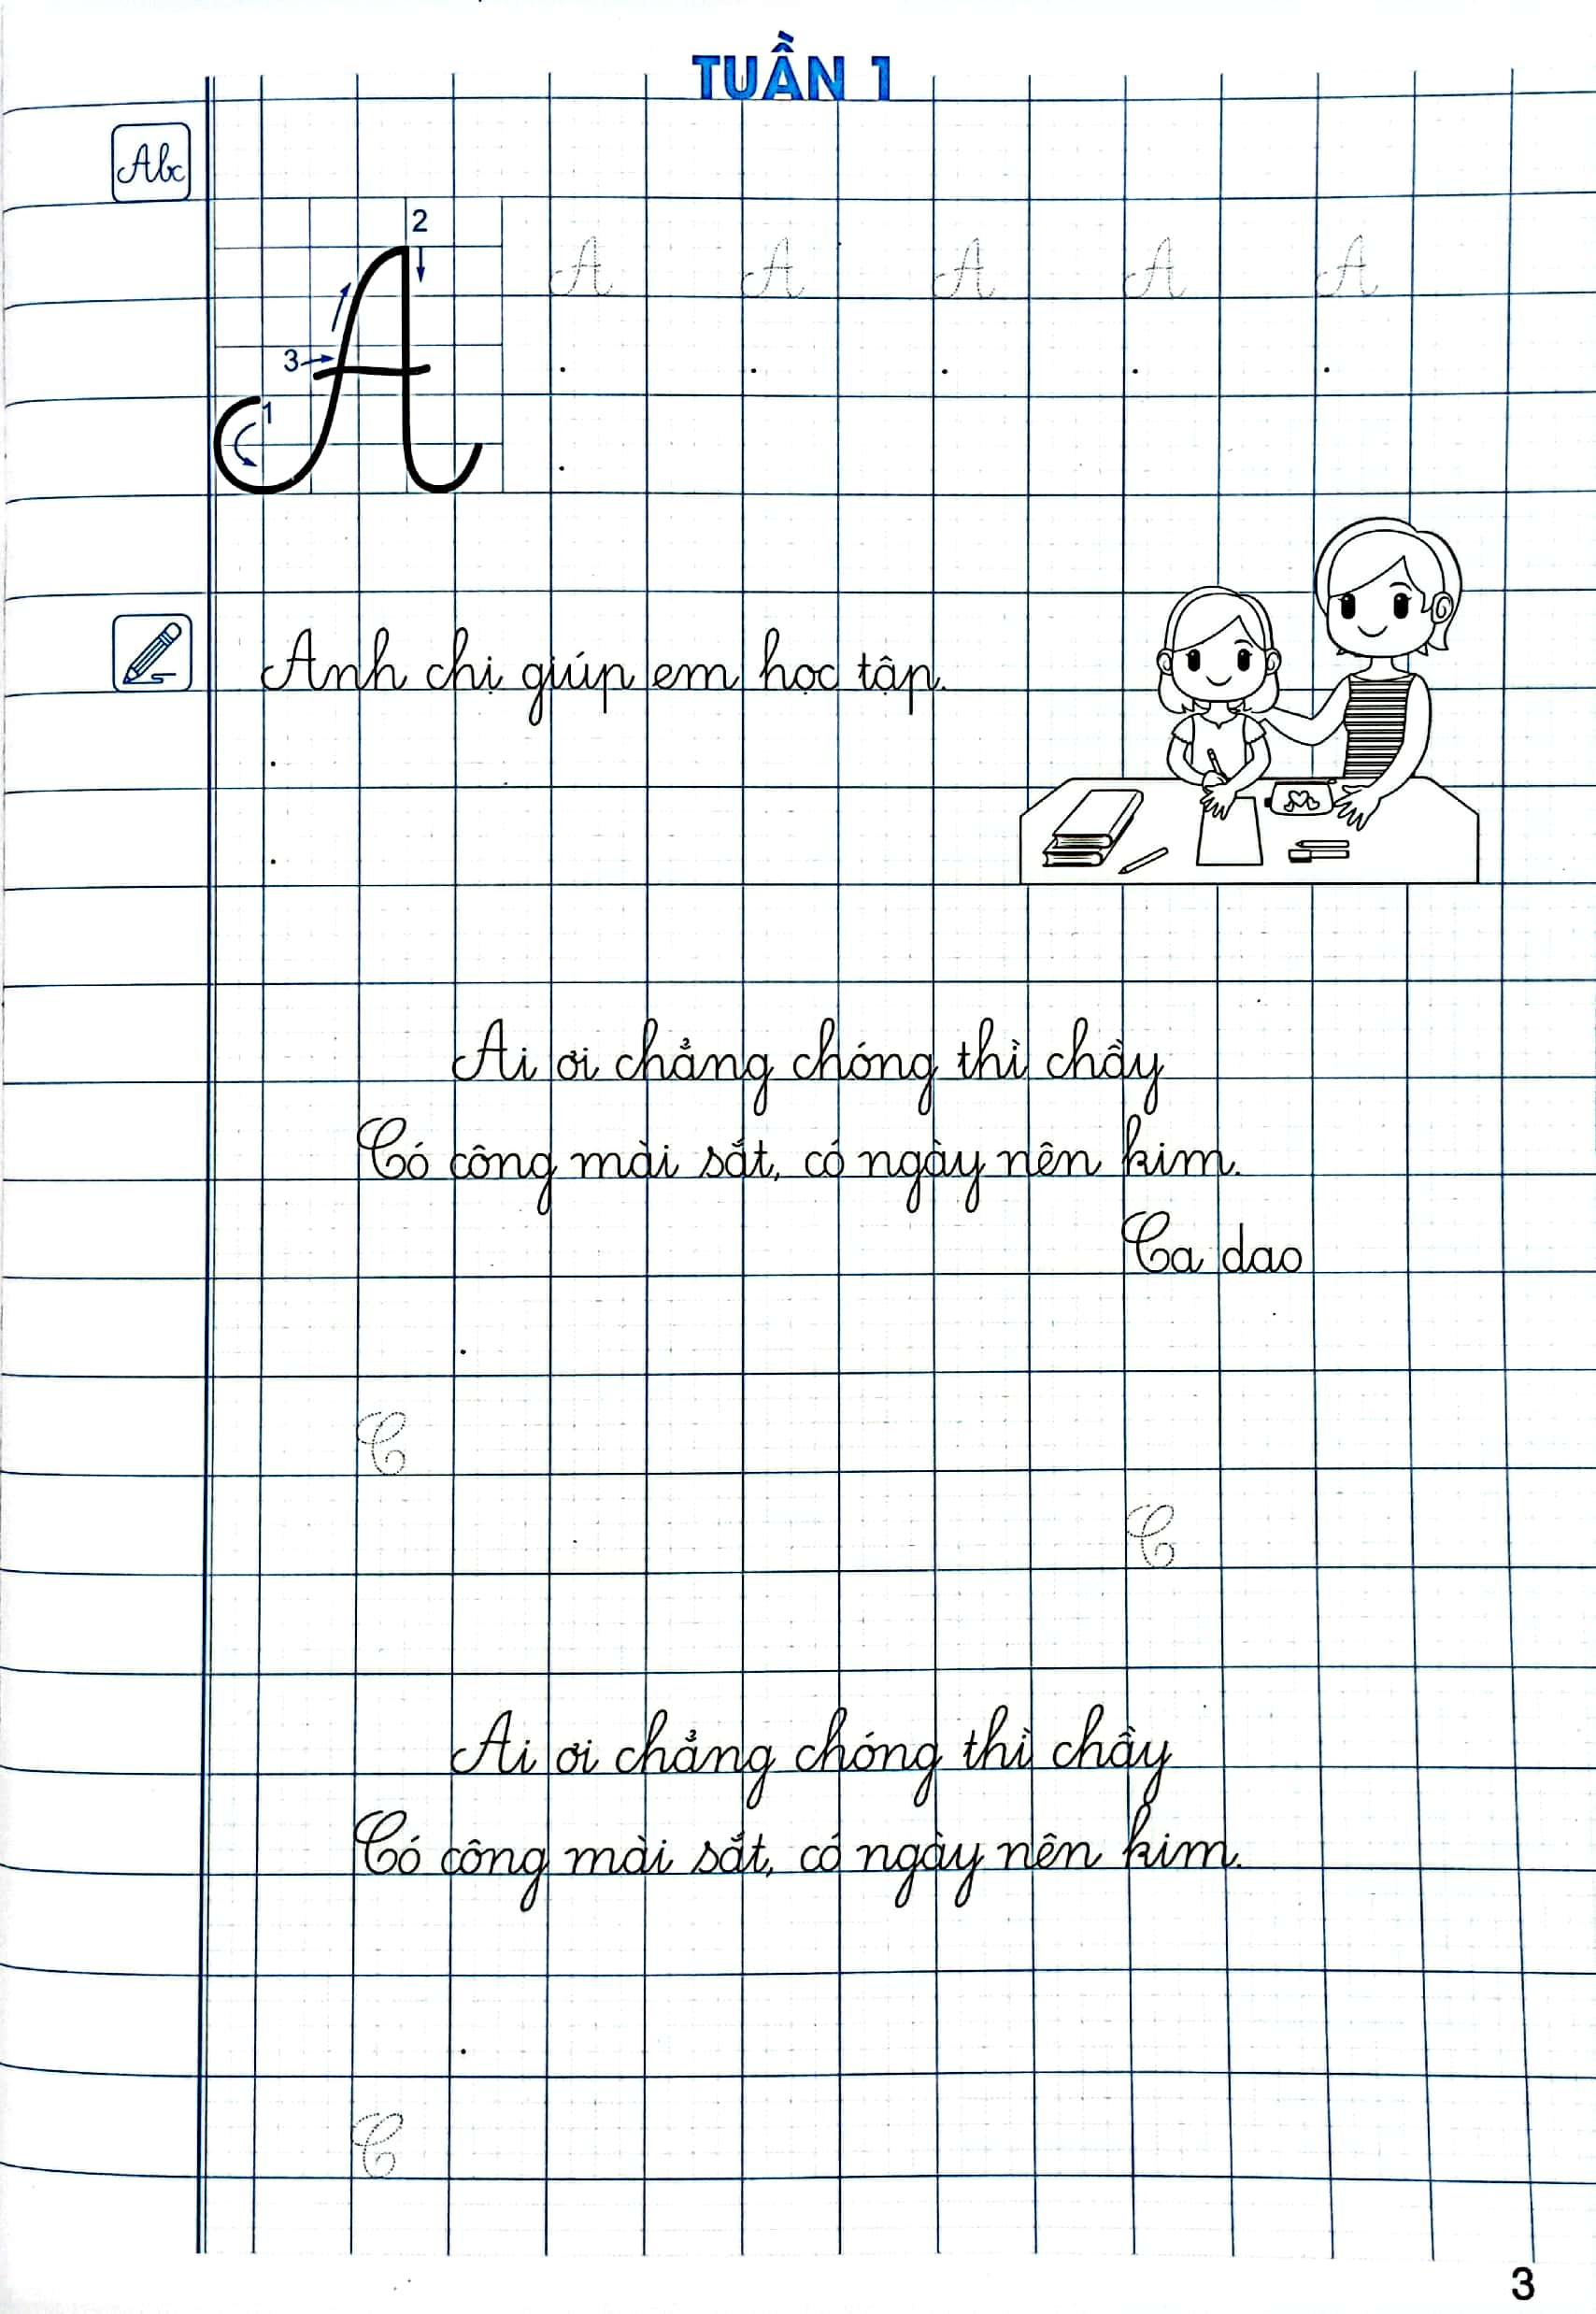 TUẦN 1
Abc
2
A A A A A
3
1
Anh chị giúp em học tập.
Ai ơi chẳng chóng thì chầy
Có công mài sắt, có ngày nên kim.
Ca dao
C
C
Ai ơi chẳng chóng thì chầy
Có công mài sắt, có ngày nên kim.
C
3